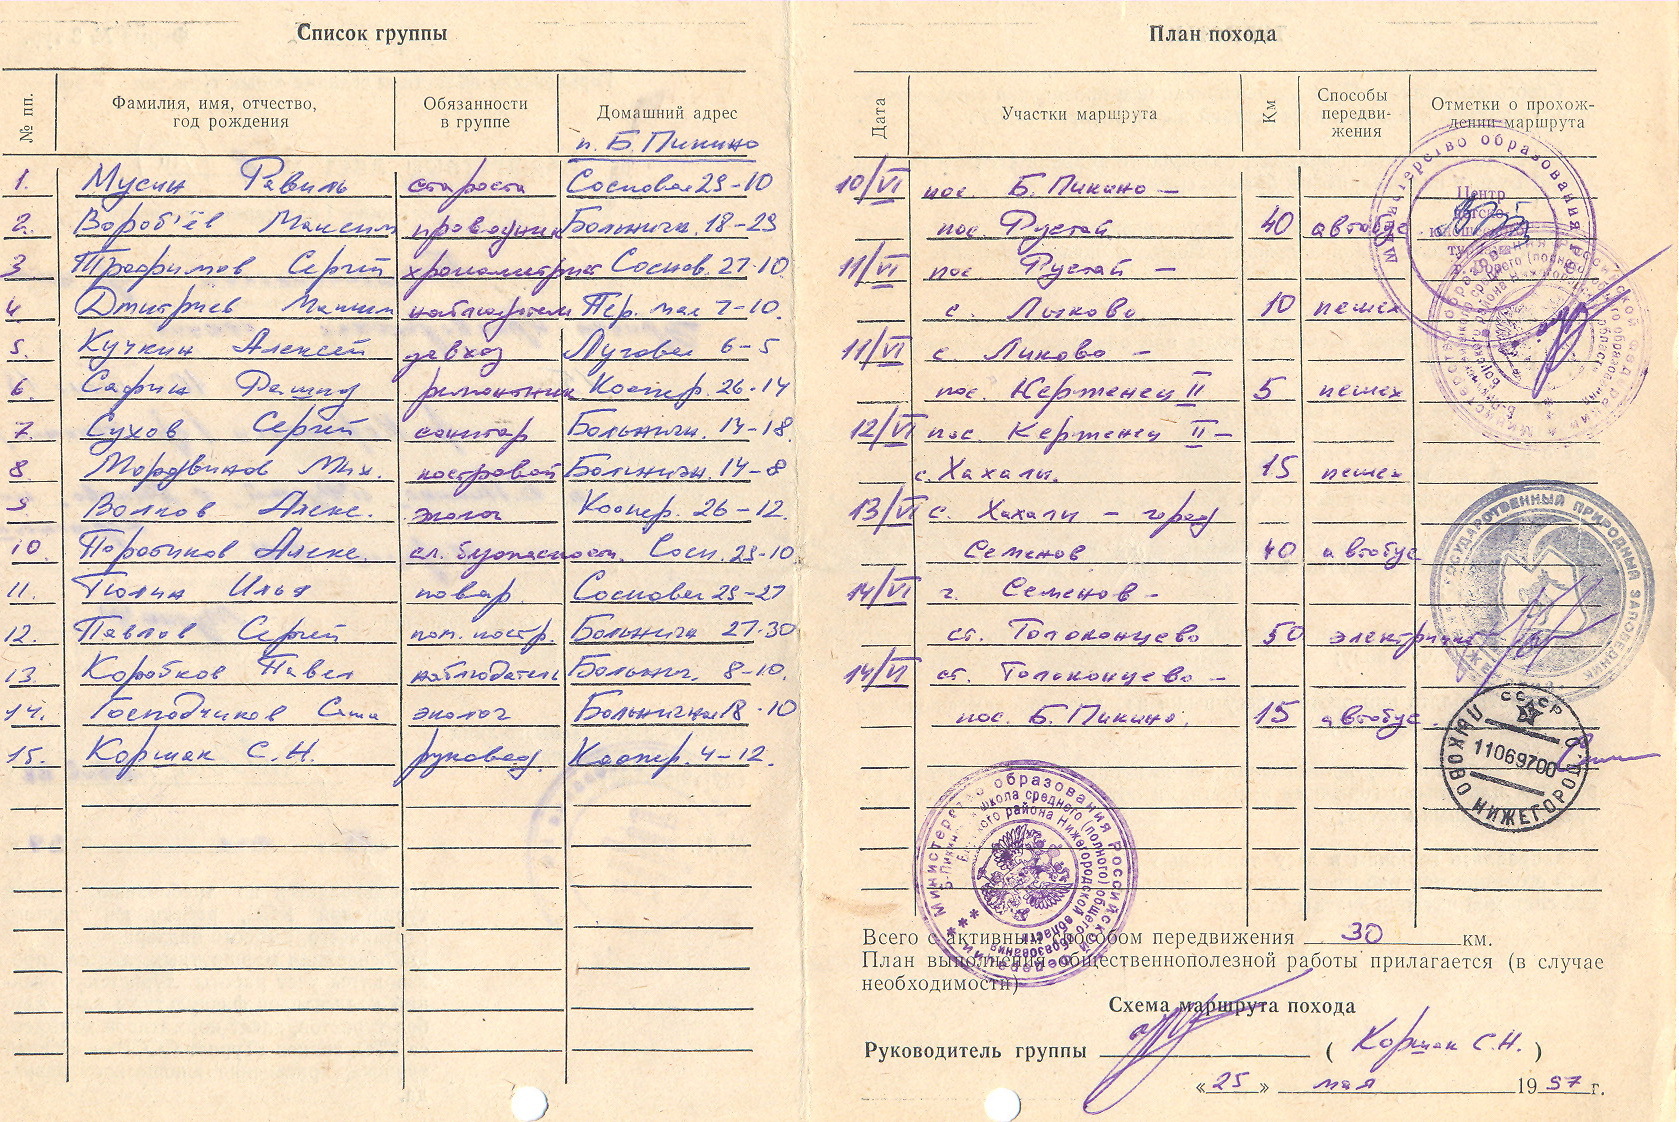 Список группы
№ пп. Фамилия, имя, отчество, год рождения Обязанности в группе Домашний адрес
п. Б. Пикино
1. Мусин Равиль староста Сосновая 29-10
2. Воробьёв Максим проводник Больничн. 18-29
3 Трофимов Сергей хронометрист Соснов. 27-10.
4. Дмитриев Максим наблюдатель Пер. мая 7-10.
5. Кучкин Алексей завхоз Луговая 6-5
6. Сафин Рашид ремонтник Коопер. 26-14
7. Сухов Сергей санитар Больничн. 14-18.
8. Мордвинов Мих. костровой Больничн. 14-8
9 Волков Алекс. эколог Коопер. 26-12.
10. Поротиков Алекс. сл. безопасности. Сосн. 29-10
11. Тюлин Илья повар Сосновая 29-27
12. Павлов Сергей пом. костр. Больничн 27-30
13. Коробков Павел наблюдатель Больнич. 8-10.
14. Господчиков Саша эколог Больничная 18-10
15. Коршак С.Н. руковод. Коопер. 4-12.
План похода
Дата Участки маршрута Км Способы передви- жения Отметки о прохож- дении маршрута
10/VI пос. Б. Пикино –
пос. Рустай 40 автобус
11/VI пос. Рустай –
с. Лыково 10 пешех
11/VI с. Лыково –
пос. Керженец II 5 пешех
12/VI пос. Керженец II –
с. Хахалы. 15 пешех
13/VI с. Хахалы – город
Семенов 40 автобус
14/VI г. Семенов –
ст. Толоконцево 50 электричка
14/VI ст. Толоконцево –
пос. Б. Пикино. 15 автобус.
Министерство образования
Центр
ГОСУДАРСТВЕННЫЙ ПРИРОДНЫЙ ЗАПОВЕДНИК
СССР
11069700
ЛЫКОВО НИЖЕГОРОД. О
Министерство образования Российской Федерации
школа среднего (полного) общего образования
района Нижегородской области
Всего с активным способом передвижения 30 км.
План выполнения общественнополезной работы прилагается (в случае
необходимости)
Схема маршрута похода
Руководитель группы ( Коршак С.Н. )
« 25 » мая 1997 г.